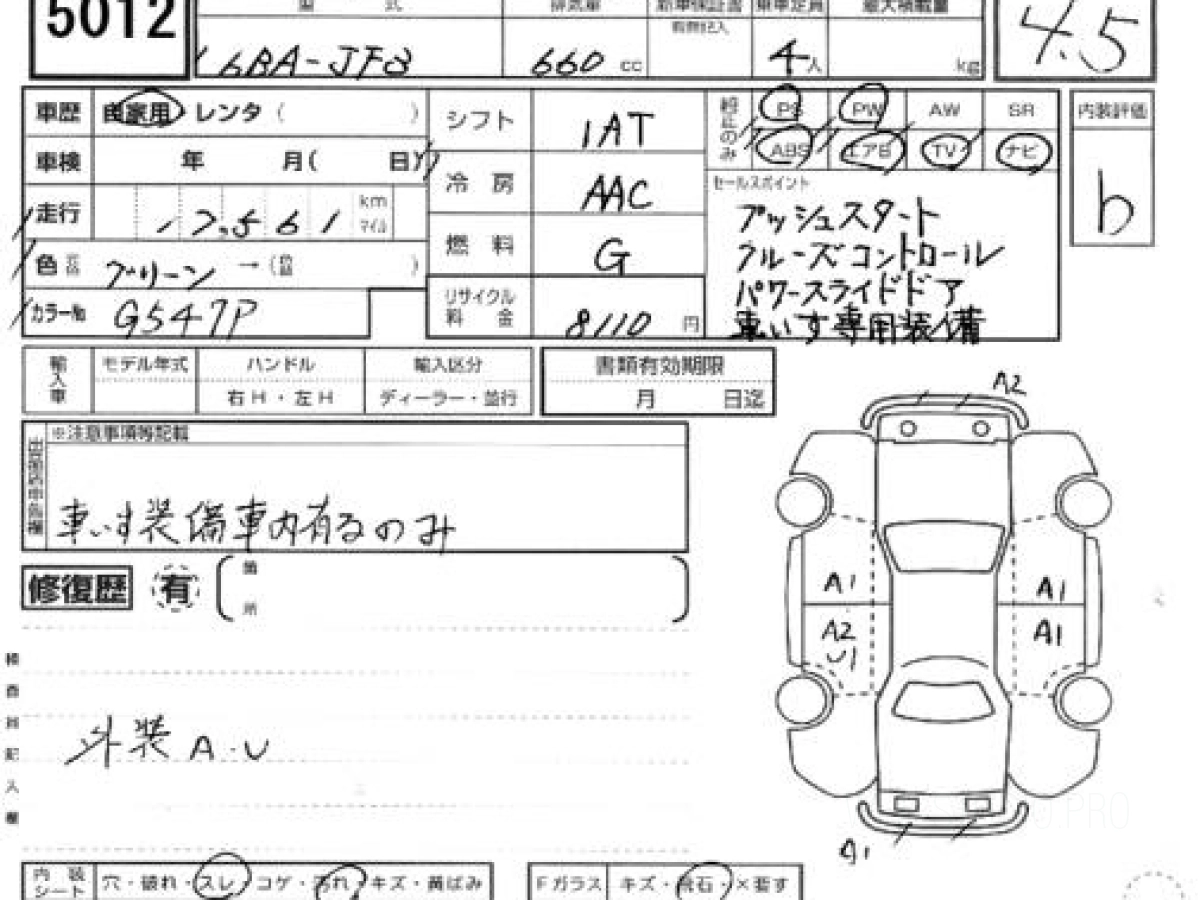 5012
型 式 排気量 新車保証書 乗車定員 最大積載量
有無記入
6BA-JF3 660 cc 4人 kg 4.5
車歴 自家用・レンタ ( )
車検 年 月( 日)
走行 17,561 km マイル
色 グリーン → ( )
カラー№ G547P
シフト 1AT
冷 房 AAC
燃 料 G
リサイクル料 金 8110 円
純正のみ
PS PW AW SR
ABS エアB TV ナビ
セールスポイント
プッシュスタート
クルーズコントロール
パワースライドドア
車いす専用装備
内装評価
b
輸入車
モデル年式 ハンドル 輸入区分
右H・左H ディーラー・並行
書類有効期限
月 日迄
※注意事項等記載
車いす装備車内有るのみ
修復歴 有
箇所
外装 A・U
A2
A1 A1
A2 A1
U1
A1
内 装 シート 穴・破れ・スレ・コゲ・汚れ・キズ・黄ばみ
Fガラス キズ・飛石・×要す
.PRO